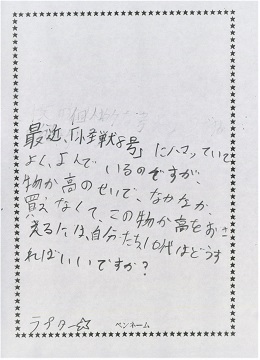 最近、「怪獣8号」にハマっていて
よく、よんで いるのですが、
物か高のせいで、なかなか
買えなくて、この物か高をおさ
えるには、自分たち10代はどうす
ればいいですか?
ライター☆ ペンネーム